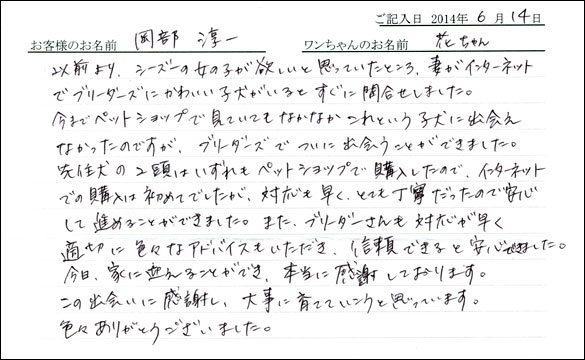 ご記入日 2014年 6月 14日
お客様のお名前 岡部 淳一 ワンちゃんのお名前 花ちゃん
以前より、シーズーの女の子が欲しいと思っていたところ、妻がインターネット
でブリーダーズにかわいい子犬がいるとすぐに問合せしました。
今までペットショップで見ていてもなかなかこれという子犬に出会え
なかったのですが、ブリーダーズでついに出会うことができました。
先住犬の2頭はいずれもペットショップで購入したので、インターネット
での購入は初めてでしたが、対応も早く、とても丁寧だったので安心
して進めることができました。また、ブリーダーさんも対応が早く
適切に色々なアドバイスもいただき、信頼できると安心できました。
今日、家に迎えることができ、本当に感謝しております。
この出会いに感謝し、大事に育てていこうと思っています。
色々ありがとうございました。